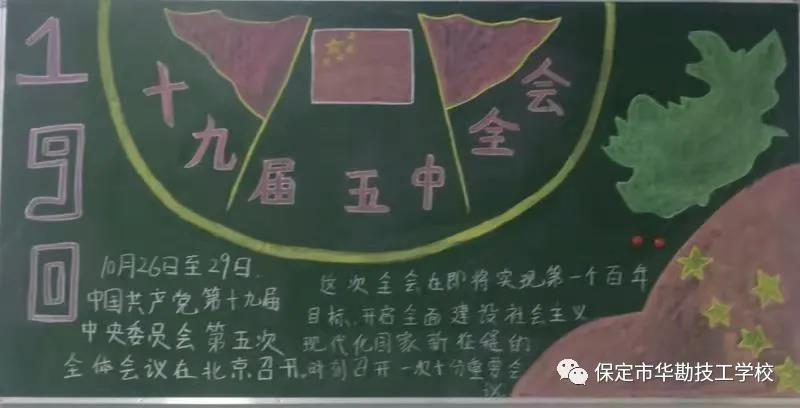 190
十九届五中全会
10月26日至29日,
中国共产党第十九届
中央委员会第五次
全体会议在北京召开.
这次全会在即将实现第一个百年
目标,开启全面建设社会主义
现代化国家新征程的
时刻召开一次十分重要会
议
保定市华勘技工学校